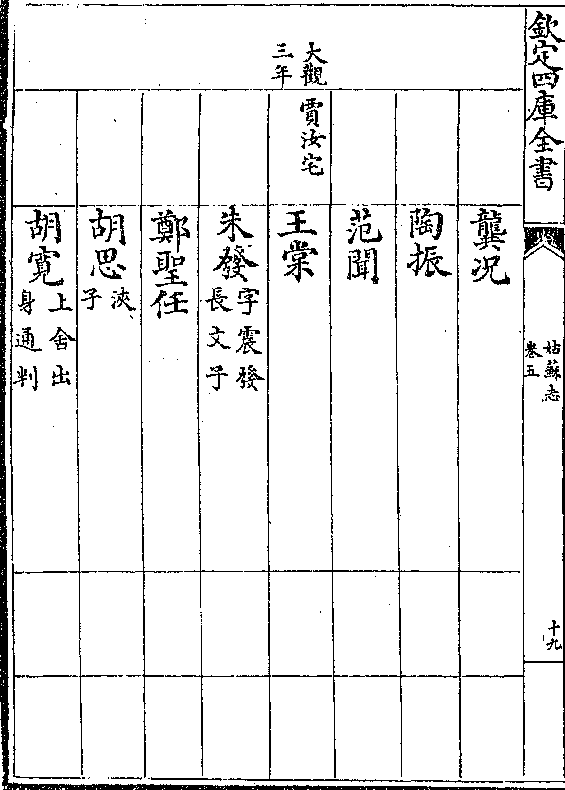 欽定四庫全書
姑蘇志
卷五
十九
龔況
陶振
范聞
大觀
三年
賈汝宅
王棠
朱發
字震發
長文子
鄭聖任
胡思
浹
子
胡寬
上舍出
身通判